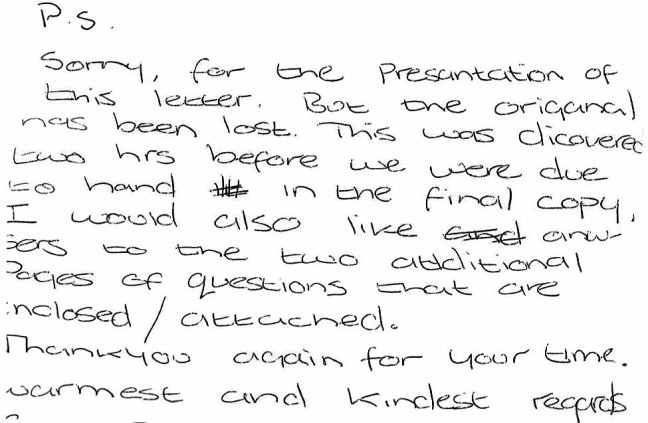 P.S.
Sorry, for the Presantation of
this letter. But the origanal
has been lost. This was dicovered
two hrs before we were due
to hand in the final copy.
I would also like anw-
sers to the two additional
Pages of questions that are
inclosed / attached.
Thankyou again for your time.
warmest and kindest regards